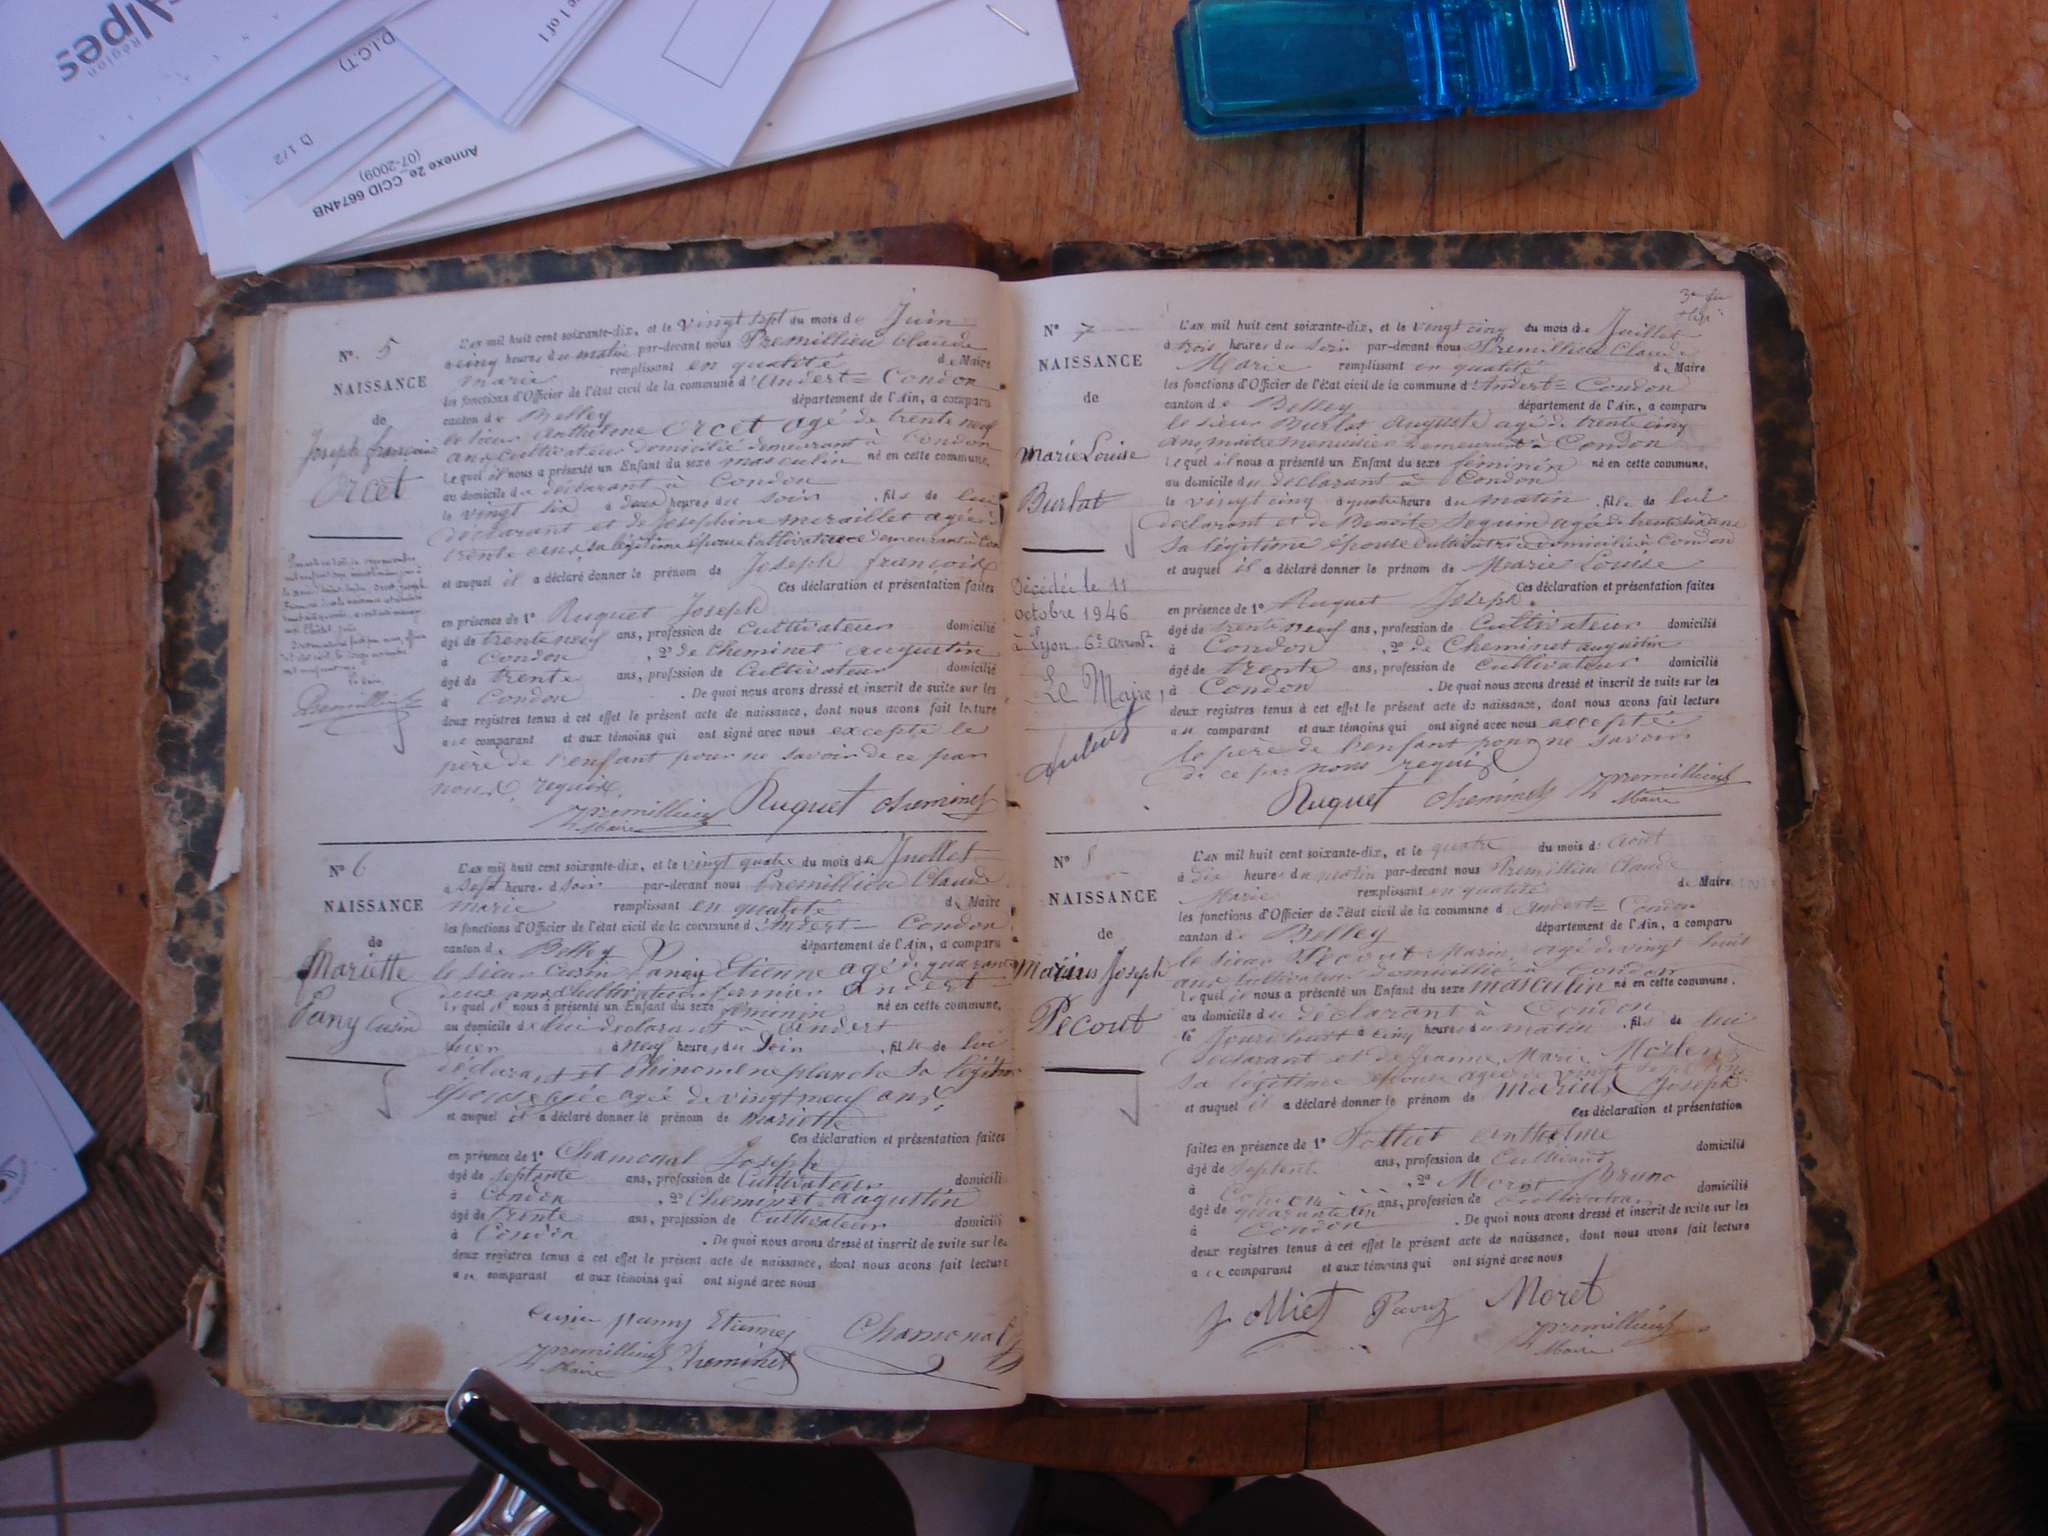 Alpes
Région
D1CT)
e 1 of 1
D 1/2
Annexe 2e_CCID 6674NB
(07-2009)
N° 5
NAISSANCE
de
Joseph françois
Orcet
L'an mil huit cent soixante-dix, et le vingt sept du mois de Juin
à cinq heures du matin par-devant nous Premillieu Claude
marie remplissant en qualité de Maire
les fonctions d'Officier de l'état civil de la commune d'Andert=Condon
canton de Belley département de l'Ain, a comparu
le sieur Anthelme Orcet agé de trente neuf
ans cultivateur domicilié demeurant à Condon
Lequel il nous a présenté un Enfant du sexe masculin né en cette commune,
au domicile du déclarant à Condon
le vingt six à deux heures du soir , fils de lui
déclarant et de Josephine meraillet agée de
trente sa légitime épouse cultivatrice demeurant à Con
et auquel il a déclaré donner le prénom de Joseph françois
Ces déclaration et présentation faites
en présence de 1° Ruguet Joseph
âgé de trente neuf ans, profession de cultivateur domicilié
à Condon , 2° de cheminet augustin
âgé de trente ans, profession de Cultivateur domicilié
à Condon . De quoi nous avons dressé et inscrit de suite sur les
deux registres tenus à cet effet le présent acte de naissance, dont nous avons fait lecture
au comparant et aux témoins qui ont signé avec nous excepté le
père de l'enfant pour ne savoir de ce par
nous requis.
Premillieu Ruguet cheminet
Maire
Premillieu
N° 6
NAISSANCE
de
Mariette
Pany Cusin
L'an mil huit cent soixante-dix, et le vingt quatre du mois de Juillet
à sept heures d soir par-devant nous Premillieu Claude
marie remplissant en qualité de Maire
les fonctions d'Officier de l'état civil de la commune d'Andert=Condon
canton de Belley département de l'Ain, a comparu
le sieur Cusin Pany Etienne agé de quarante
deux ans cultivateur fermier Andert
Lequel il nous a présenté un Enfant du sexe féminin né en cette commune,
au domicile de lui déclarant à Andert
hier à neuf heures du Soir , fille de lui
déclarant et planche sa légitime
épouse agée de vingt neuf ans
et auquel il a déclaré donner le prénom de mariette
Ces déclaration et présentation faites
en présence de 1° Chamonal Joseph
âgé de septante ans, profession de Cultivateur domicilié
à Condon , 2° Cheminet augustin
âgé de trente ans, profession de Cultivateur domicilié
à Condon . De quoi nous avons dressé et inscrit de suite sur les
deux registres tenus à cet effet le présent acte de naissance, dont nous avons fait lecture
au comparant et aux témoins qui ont signé avec nous
Cusin pany Etienne Chamonal
Premillieu Cheminet
Maire
N° 7
NAISSANCE
de
Marie Louise
Burlat
Décédée le 11
octobre 1946
à Lyon 6e arrondt.
Le Maire,
L'an mil huit cent soixante-dix, et le vingt cinq du mois de Juillet
à trois heures du soir par-devant nous Premillieu Claude
Marie remplissant en qualité de Maire
les fonctions d'Officier de l'état civil de la commune d'Andert=Condon
canton de Belley département de l'Ain, a comparu
le sieur Burlat auguste agé de trente cinq
ans, maitre menuisier demeurant à Condon
Lequel il nous a présenté un Enfant du sexe féminin né en cette commune,
au domicile du déclarant à Condon
le vingt cinq à quatre heure du matin , fille de lui
déclarant et de Benoite Seguin agée de trente six ans
sa légitime épouse cultivatrice domiciliée à Condon
et auquel il a déclaré donner le prénom de Marie Louise
Ces déclaration et présentation faites
en présence de 1° Ruguet Joseph
âgé de trente neuf ans, profession de Cultivateur domicilié
à Condon , 2° de Cheminet augustin
âgé de trente ans, profession de cultivateur domicilié
à Condon . De quoi nous avons dressé et inscrit de suite sur les
deux registres tenus à cet effet le présent acte de naissance, dont nous avons fait lecture
au comparant et aux témoins qui ont signé avec nous accepté
le père de l'enfant pour ne savoir
de ce par nous requis
Ruguet cheminet Premillieu
Maire
N° 8
NAISSANCE
de
Marius Joseph
Pecout
L'an mil huit cent soixante-dix, et le quatre du mois d août
à dix heures du matin par-devant nous Premillieu Claude
Marie remplissant en qualité de Maire
les fonctions d'Officier de l'état civil de la commune d Andert=Condon
canton de Belley département de l'Ain, a comparu
le sieur Pecout Marin agé de vingt huit
ans cultivateur domicilié à Condon
Lequel il nous a présenté un Enfant du sexe masculin né en cette commune,
au domicile du déclarant à Condon
à cinq heures du matin , fils de lui
déclarant et de Jeanne Marie
sa légitime épouse agée de vingt sept ans
et auquel il a déclaré donner le prénom de Marius Joseph
Ces déclaration et présentation
faites en présence de 1° Jolliet anthelme domicilié
âgé de septente ans, profession de Cultivateur
à Condon , 2° Moret Bruno domicilié
âgé de quarante six ans, profession de Cultivateur
à Condon . De quoi nous avons dressé et inscrit de suite sur les
deux registres tenus à cet effet le présent acte de naissance, dont nous avons fait lecture
a ce comparant et aux témoins qui ont signé avec nous
Jolliet Pecout Moret
Premillieu
Maire